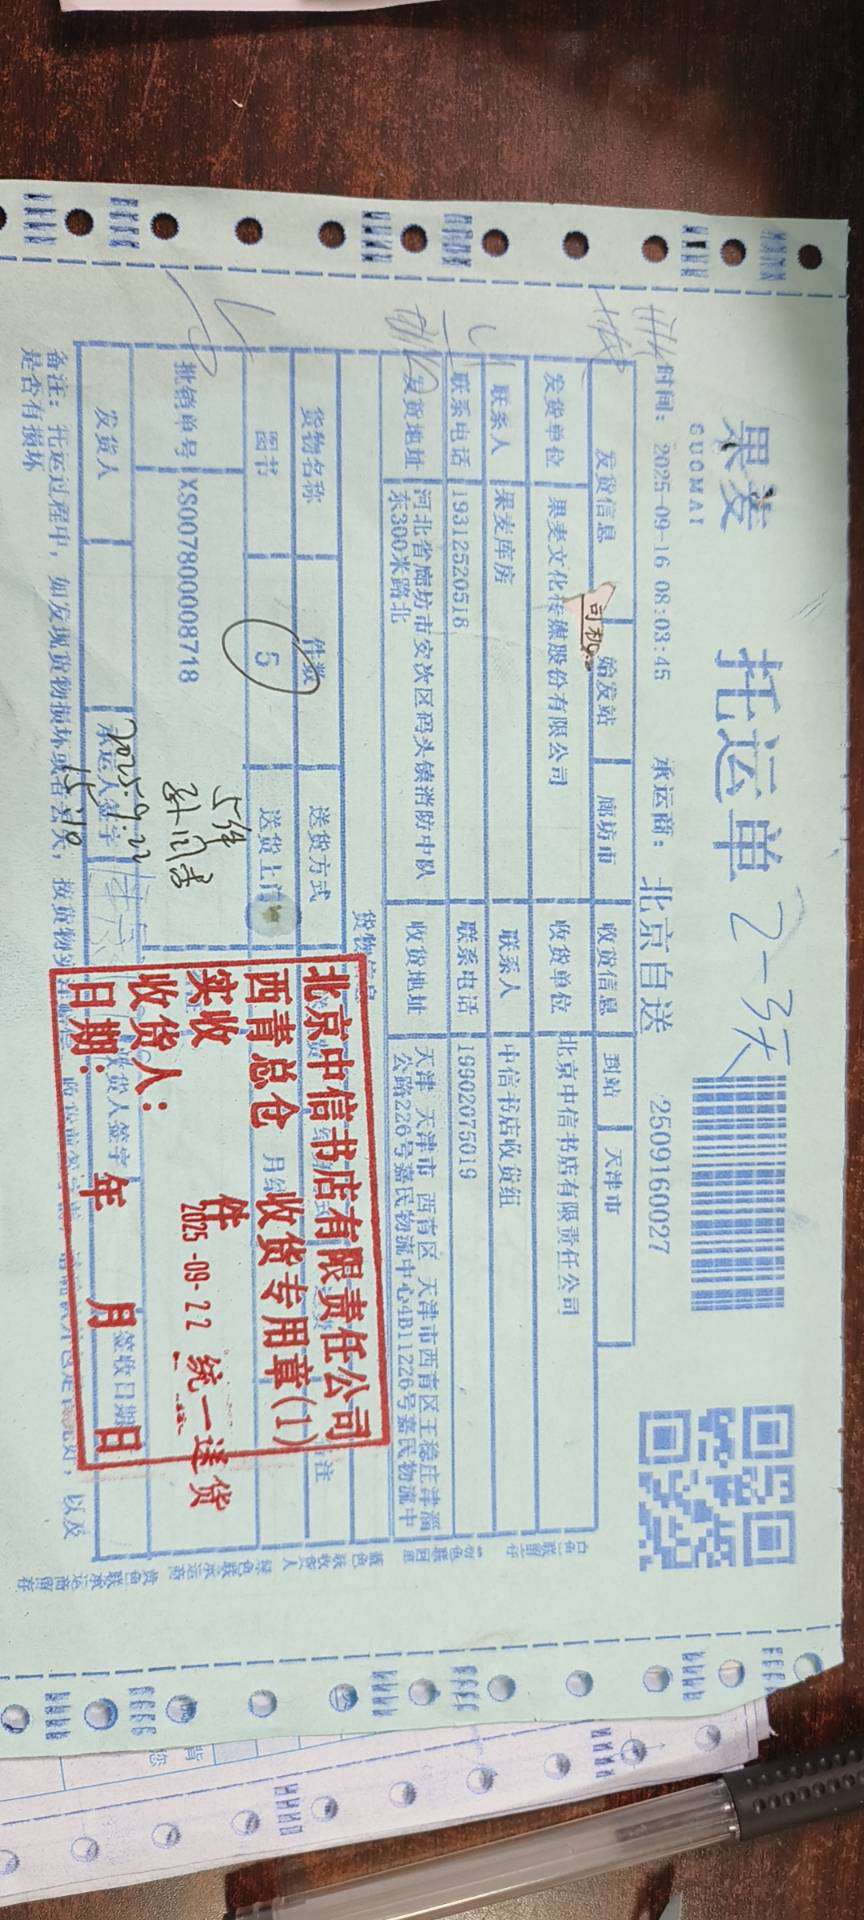 果麦
GUOMAI
托运单
2-3天
2509160027
时间: 2025-09-16 08:03:45
承运商: 北京自送
发货信息 始发站 廊坊市 收货信息 到站 天津市
司机
发货单位 果麦文化传媒股份有限公司 收货单位 北京中信书店有限责任公司
联系人 果麦库房 联系人 中信书店收货组
联系电话 19312520518 联系电话 19902075019
发货地址 河北省廊坊市安次区码头镇消防中队
东300米路北
收货地址 天津 天津市 西青区 天津市西青区王稳庄津淄
公路226号嘉民物流中心4B11226号嘉民物流中
货物信息
货物名称 件数 送货方式
图书 5 送货上门
批销单号 XS007800008718
5件
2025.9.22
15:10
发货人 承运人签字 收货人签字 签收日期
北京中信书店有限责任公司
西青总仓 收货专用章(1)
实收 件
2025-09-22 统一送货
收货人:
日期: 年 月 日
备注: 托运过程中, 如发现货物损坏或者丢失, 按货物
是否有损坏
以及